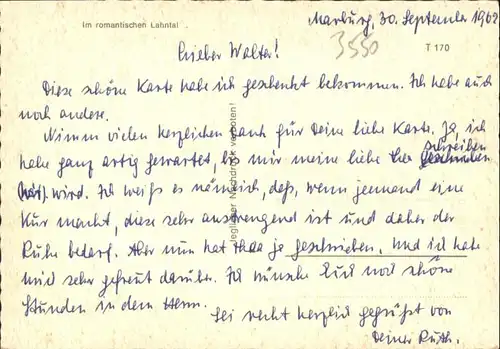 Im romantischen Lahntal
Marburg, 30. September 1962
3550
T 170
Lieber Walter!
Diese schöne Karte habe ich geschenkt bekommen. Ich habe auch
noch andere.
Nimm vielen herzlichen Dank für Deine liebe Karte. Ja, ich
habe ganz artig gewartet, bis mir meine liebe schreiben
wird. Ich weiß es nämlich, daß, wenn jemand eine
Kur macht, diese sehr anstrengend ist und daher der
Ruhe bedarf. Aber nun hat ja geschrieben. Und ich habe
mich sehr gefreut darüber. Ich wünsche Euch noch schöne
Stunden in dem Heim.
Sei recht herzlich gegrüßt von
Deiner Ruth.
Jeglicher Nachdruck verboten!